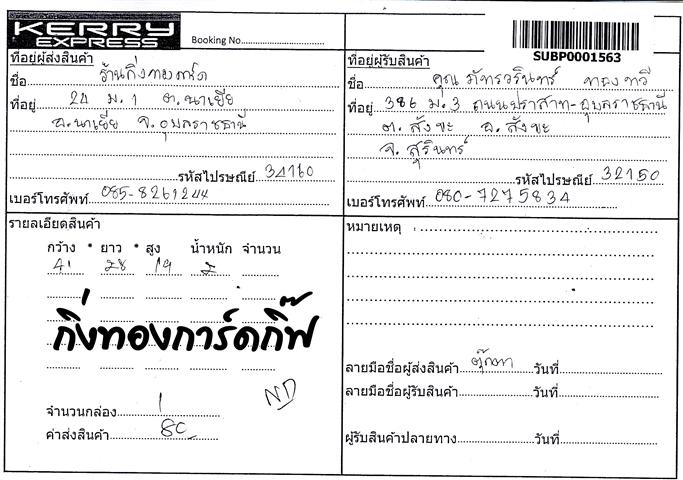 KERRY
EXPRESS
Booking No.
SUBP0001563
ที่อยู่ผู้ส่งสินค้า
ชื่อ ร้านกิ่งทองการ์ด
ที่อยู่ 24 ม.1 ต.นาเยีย
อ.นาเยีย จ.อุบลราชธานี
รหัสไปรษณีย์ 34160
เบอร์โทรศัพท์ 085-8261244
ที่อยู่ผู้รับสินค้า
ชื่อ คุณ ภัทรวรินทร์ ทองทวี
ที่อยู่ 386 ม.3 ถนนปราสาท-อุบลราชธานี
ต. สังขะ อ. สังขะ
จ. สุรินทร์
รหัสไปรษณีย์ 32150
เบอร์โทรศัพท์ 080-7275834
รายละเอียดสินค้า
กว้าง * ยาว * สูง น้ำหนัก จำนวน
41 28 19 2
กิ่งทองการ์ดกิ๊ฟ
ND
จำนวนกล่อง 1
ค่าส่งสินค้า 80
หมายเหตุ :
ลายมือชื่อผู้ส่งสินค้า ตุ๊กตา วันที่
ลายมือชื่อผู้รับสินค้า วันที่
ผู้รับสินค้าปลายทาง วันที่